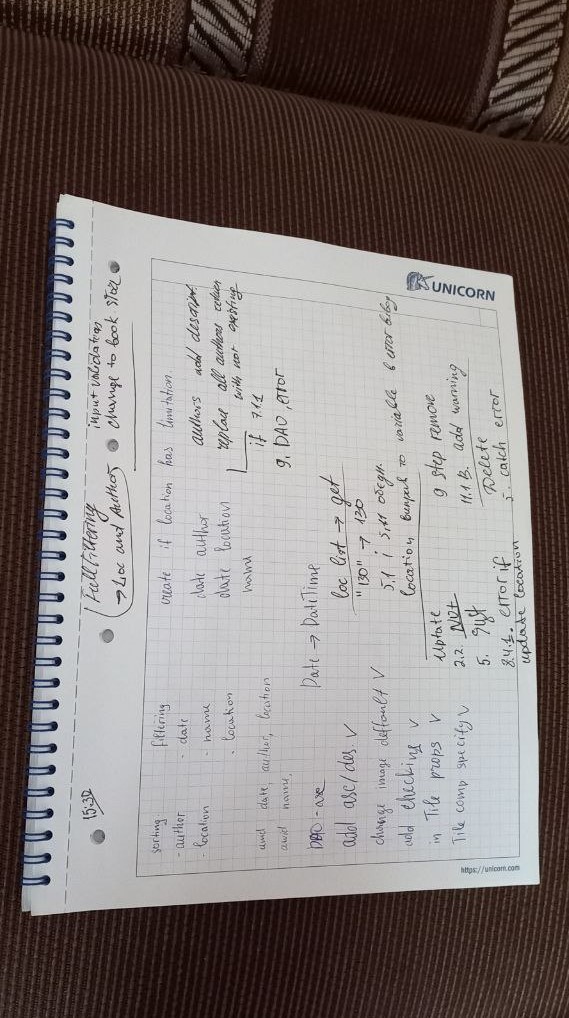 15:32
Full Filtering
→ Loc and Author
input validation
change to book store
sorting
- author
- location
filtering
· date
· name
· location
and date author, location
and name.
DAO -
add asc/des V
change image deffault V
add checking V
in Tile props V
Tile comp specify V
create if location has limitation.
date author
date location
name
authors add
replace all authors
with not existing
if 7.1.1
9. DAO, error
Date → DateTime
loc list → get
"130" → 130
5.1 i 5.11
location to variable
Uptate
2.2. Not
5.
8.4.1. error if
update location
9 step remove
11.1 B. add warning
Delete
5. catch error
UNICORN
https://unicorn.com